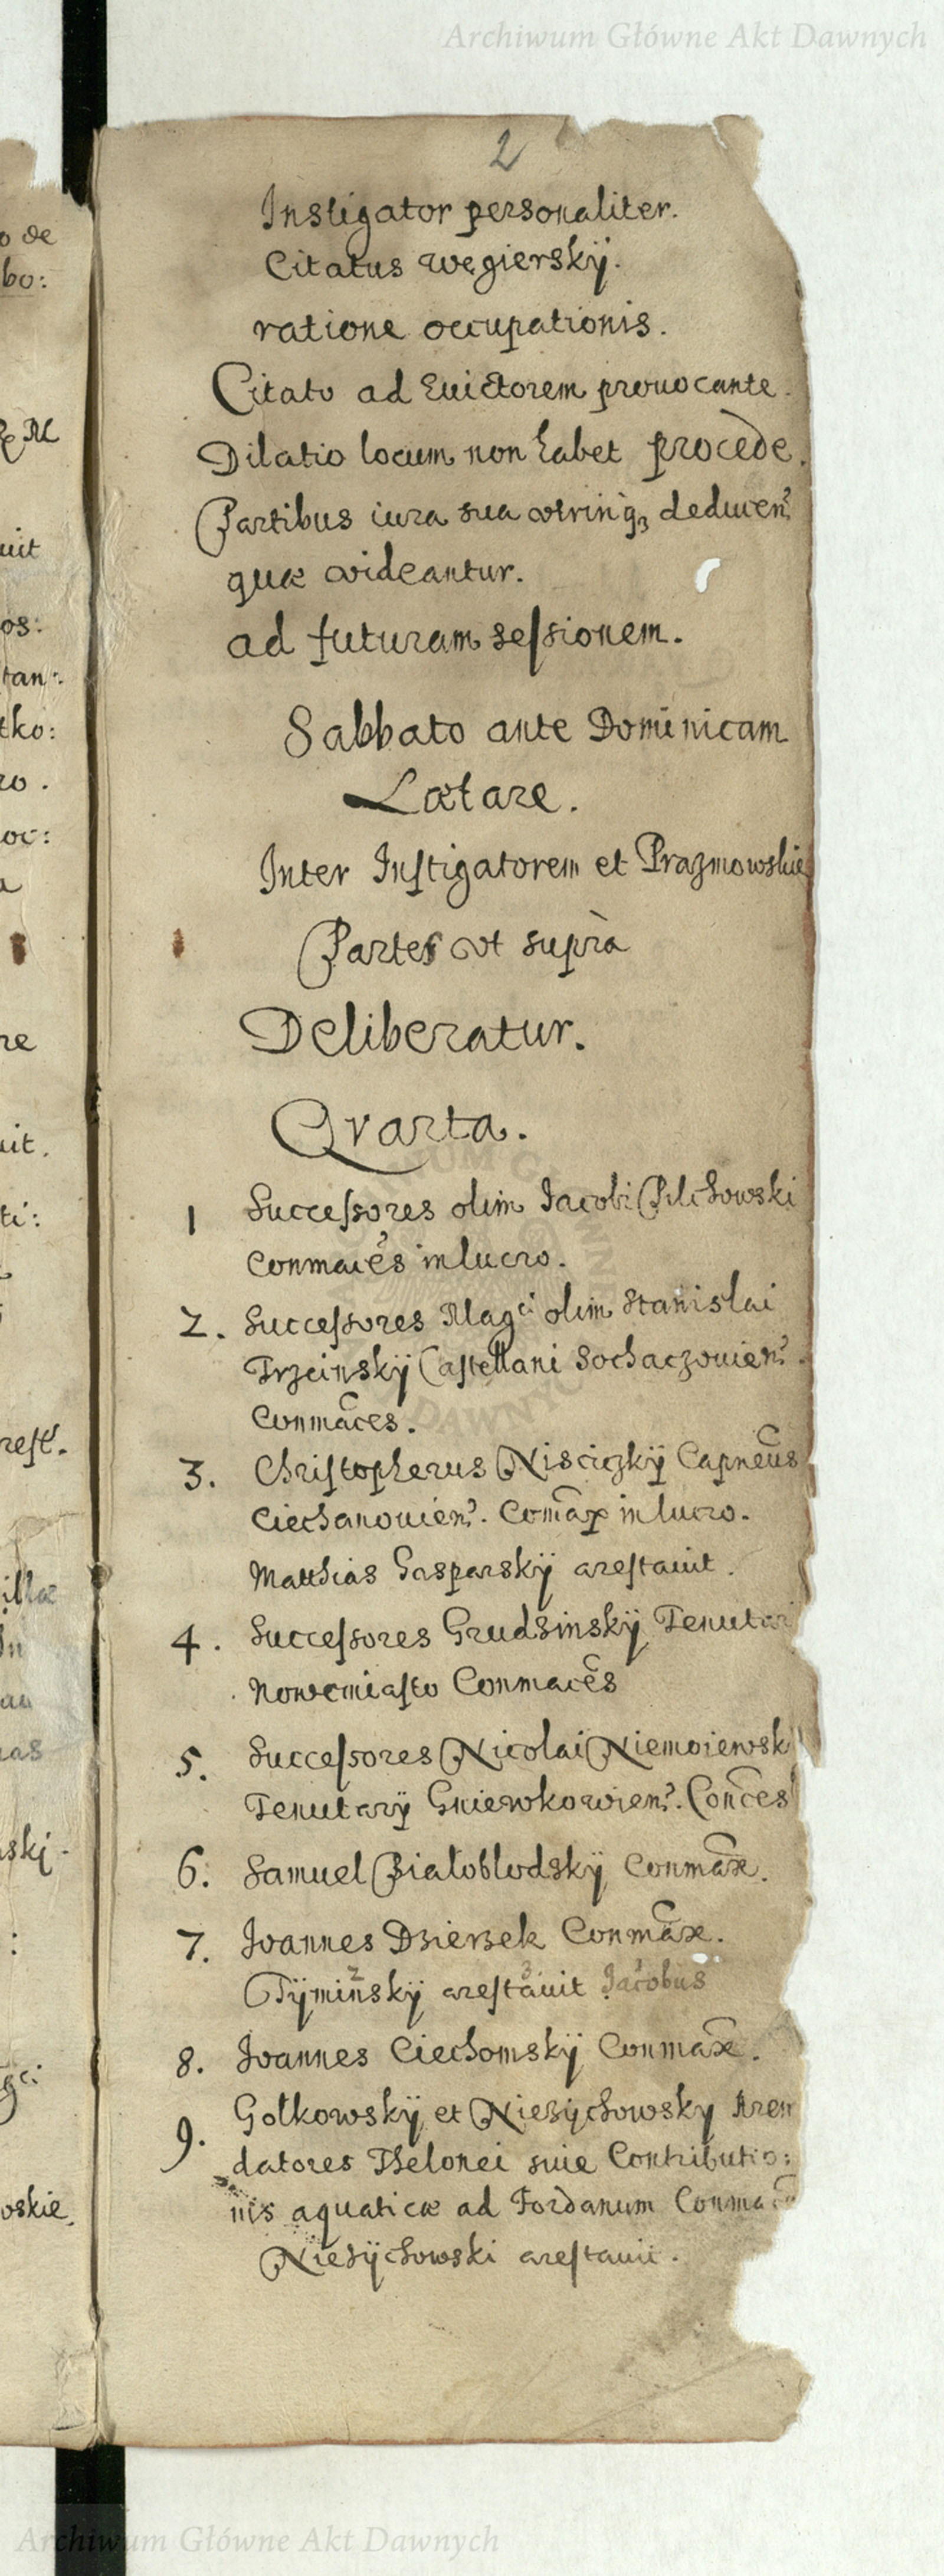 Archiwum Główne Akt Dawnych
2
Instigator personaliter.
Citatus Węgierskÿ.
ratione occupationis.
Citato ad Euictorem prouocante.
Dilatio locum non habet procede.
Partibus iura sua vtrinq₃ deducen
quæ videantur.
ad futuram seſsionem.
Sabbato ante Dominicam
Lætare.
Inter Inſtigatorem et Prazmowskie
Partes vt suprà
Deliberatur.
Qvarta.
1 Succeſsores olim Jacobi Pilchowski
Conmaces in lucro.
2. Succeſsores Magci olim Stanislai
Trzcinskÿ Caſtellani Sochaczouien.
Conmaces.
3. Chriſtopherus Nisciczkÿ Capneus
Ciechanouien. Comax in lucro.
Matthias Gasparskÿ areſtauit.
4. Succeſsores Grudsinskÿ Tenutari
Nowemiaſto Conmaces
5. Succeſsores Nicolai Niemoiewsk
Tenutarÿ Gniewkowien. Conces
6. Samuel Białoblodskÿ Conmax.
7. Joannes Dsiersek Conmax.
Tÿminskÿ areſtauit Jacobus
8. Joannes Ciechomskÿ Conmax.
9. Golkowskÿ et Niesÿchowsky Aren
datores Thelonei siue Contributio:
nis aquaticæ ad Fordanum Conma
Niesÿchowski areſtauit.
Archiwum Główne Akt Dawnych